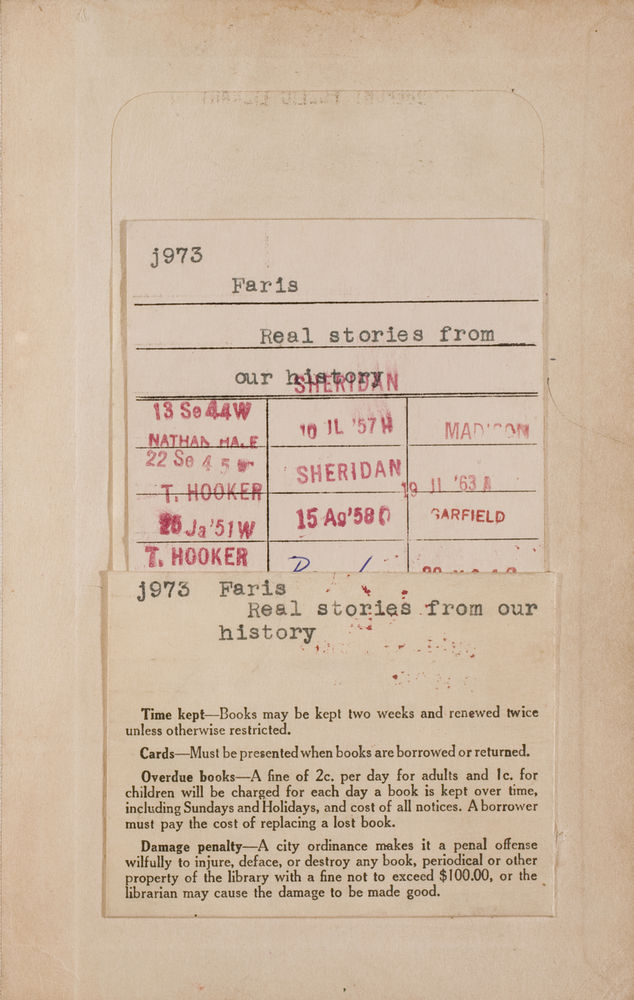 j973
Faris
Real stories from
our history
SHERIDAN
13 Se 44W
10 JL '57 W
NATHAN HALE
MADISON
22 Se 45 W
SHERIDAN
T. HOOKER
19 Jl '63
15 Ag '58
GARFIELD
Ja '51 W
T. HOOKER
j973 Faris
Real stories from our
history
Time kept—Books may be kept two weeks and renewed twice
unless otherwise restricted.
Cards—Must be presented when books are borrowed or returned.
Overdue books—A fine of 2c. per day for adults and 1c. for
children will be charged for each day a book is kept over time,
including Sundays and Holidays, and cost of all notices. A borrower
must pay the cost of replacing a lost book.
Damage penalty—A city ordinance makes it a penal offense
wilfully to injure, deface, or destroy any book, periodical or other
property of the library with a fine not to exceed $100.00, or the
librarian may cause the damage to be made good.